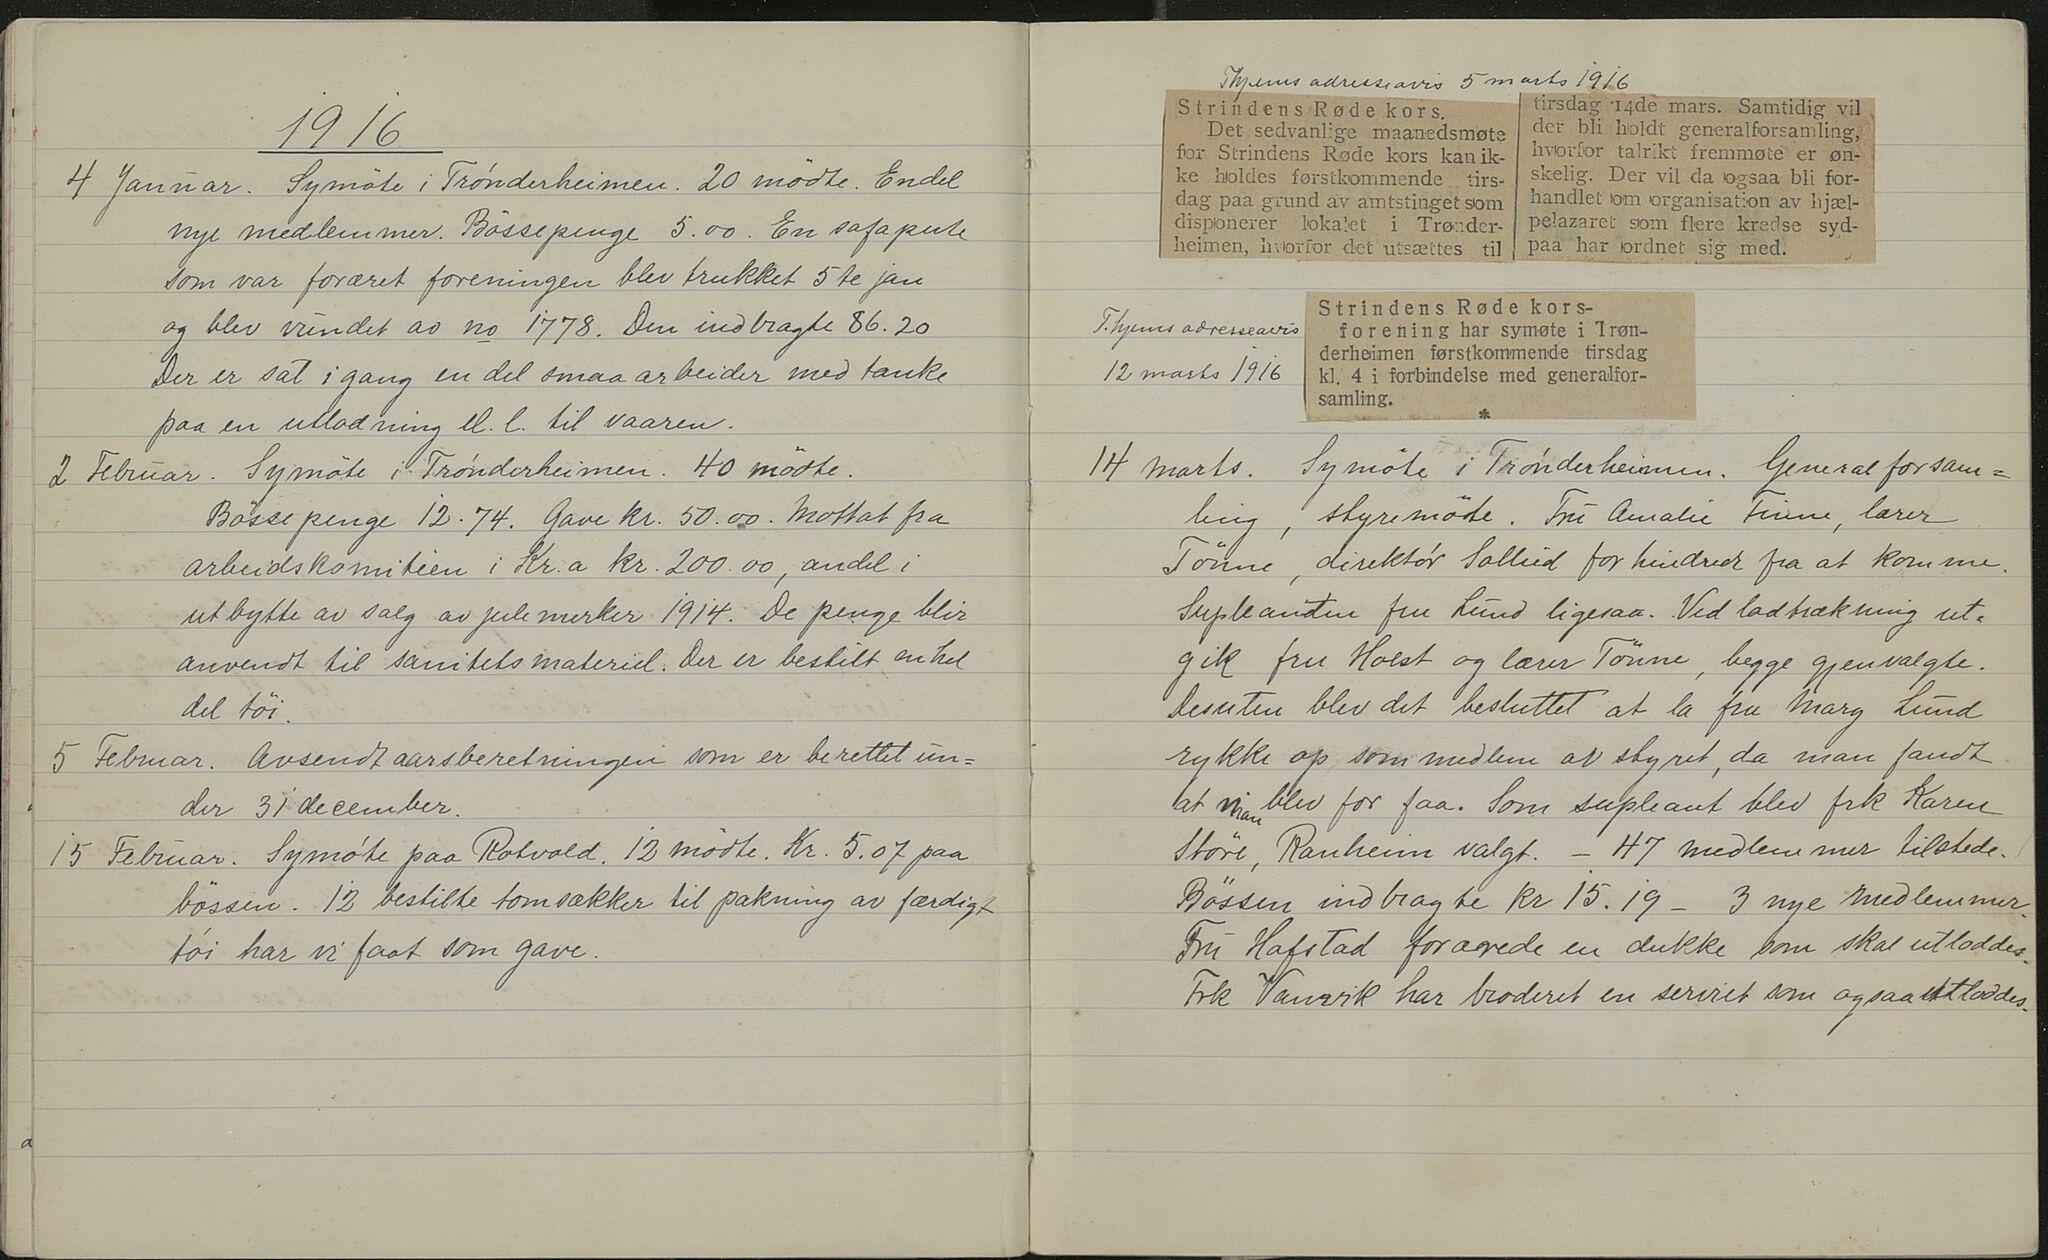 1916
4 Januar. Symöte i Trönderheimen. 20 mödte. Endel
nye medlemmer. Bössepenge 5.00. En sofapute
som var foræret foreningen blev trukket 5te jan
og blev vundet av no 1778. Den indbragte 86.20
Der er sat i gang en del smaa arbeider med tanke
paa en utlodning el. l. til vaaren.
2 Februar. Symöte i Trönderheimen. 40 mödte.
Bössepenge 12.74. Gave kr. 50.00. Mottat fra
arbeidskomiteen i Kr.a kr. 200.00, andel i
utbytte av salg av julemerker 1914. De penge blir
anvendt til sanitetsmateriel. Der er bestilt en hel
del töi.
5 Februar. Avsendt aarsberetningen som er berettet un=
der 31 december.
15 Februar. Symöte paa Rotvold. 12 mödte. Kr. 5.07 paa
bössen. 12 bestilte tomsækker til pakning av færdigt
töi har vi faat som gave.
Thjems adresseavis 5 marts 1916
Strindens Røde kors.
Det sedvanlige maanedsmøte
for Strindens Røde kors kan ik-
ke holdes førstkommende tirs-
dag paa grund av amtstinget som
disponerer lokalet i Trønder-
heimen, hvorfor det utsættes til
tirsdag 14de mars. Samtidig vil
der bli holdt generalforsamling,
hvorfor talrikt fremmøte er øn-
skelig. Der vil da ogsaa bli for-
handlet om organisation av hjæl-
pelazaret som flere kredse syd-
paa har ordnet sig med.
T.hjems adresseavis
12 marts 1916
Strindens Røde kors-
forening har symøte i Trøn-
derheimen førstkommende tirsdag
kl. 4 i forbindelse med generalfor-
samling.
*
14 marts. Symöte i Trönderheimen. Generalforsam=
ling, styremöte. Fru Amalie Finne, lærer
Tönne, direktör Sollied forhindret fra at komme.
Supleanten fru Lund ligesaa. Ved lodtrækning ut=
gik fru Holst og lærer Tönne, begge gjenvalgte.
Desuten blev det besluttet at la fru Marg Lund
rykke op som medlem av styret, da man fandt
at man blev for faa. Som supleant blev frk Karen
Störe, Ranheim valgt. – 47 medlemmer tilstede.
Bössen indbragte kr 15.19 – 3 nye medlemmer.
Fru Hafstad forærede en dukke som skal utloddes.
Frk Vanvik har broderet en serviet som ogsaa utloddes.